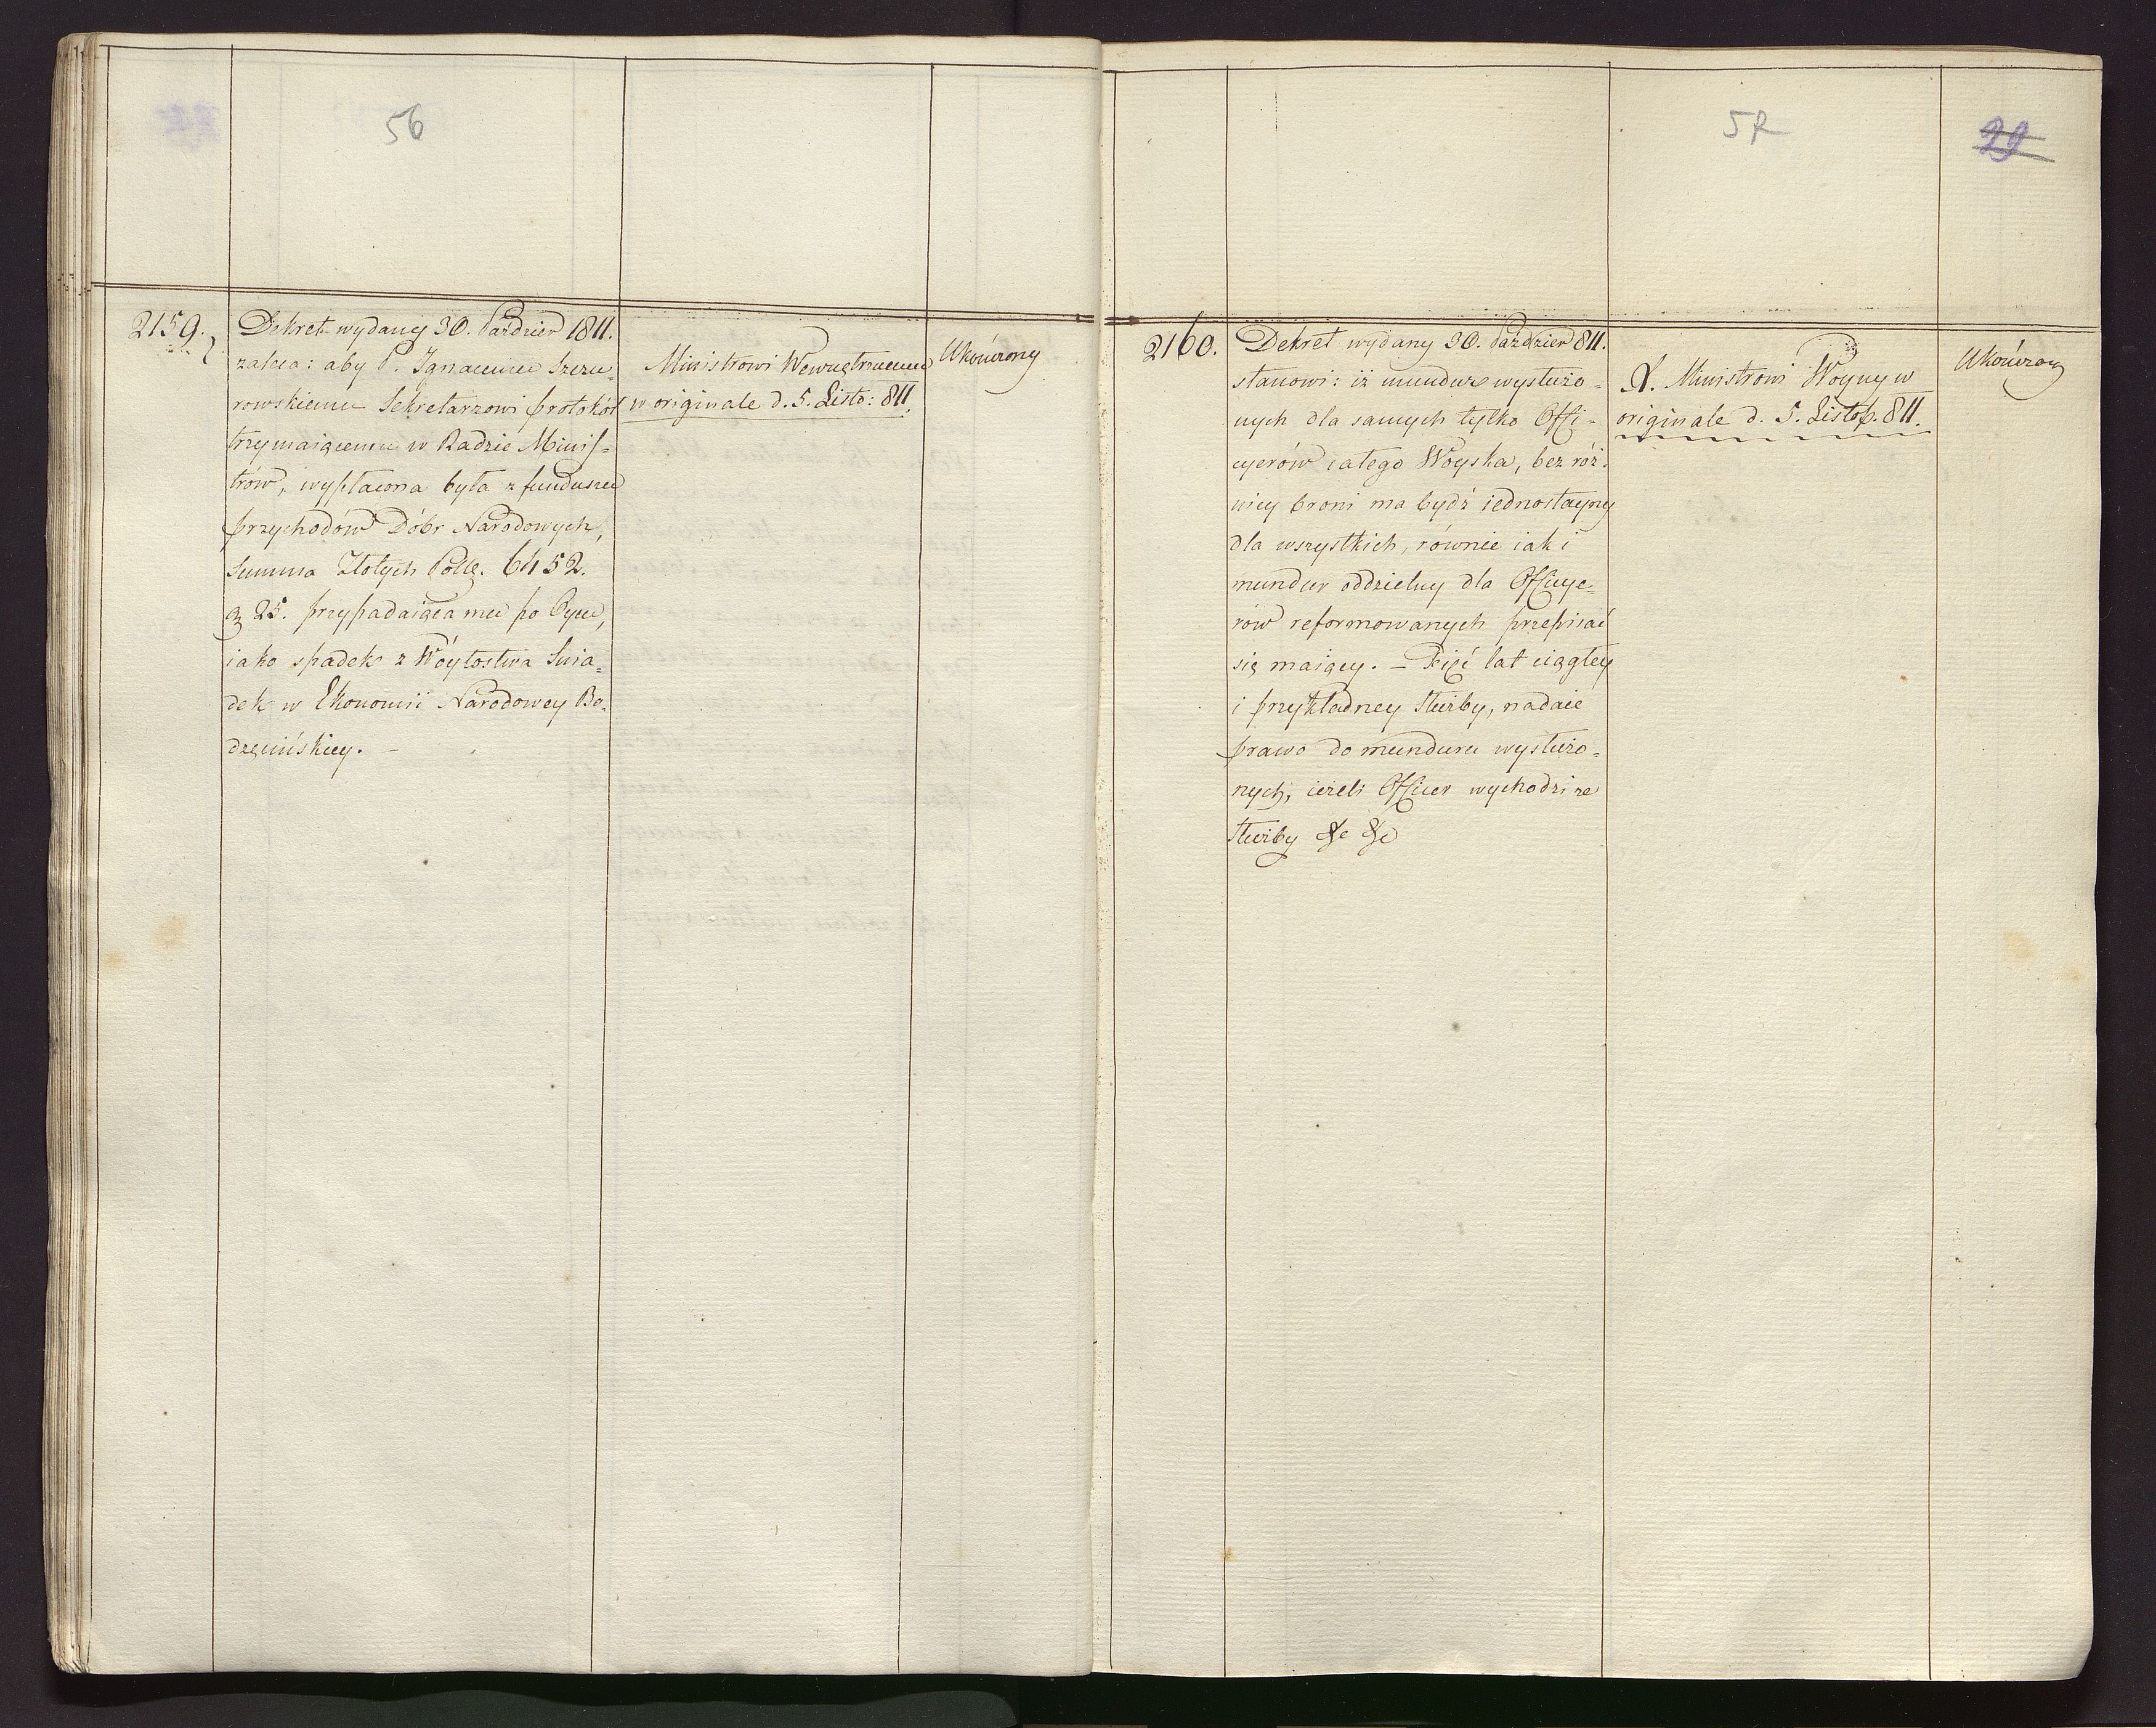 56
2159.
Dekret wydany 30. Paździer 1811.
zaleca: aby P. Ignacemu Szczu-
rowskiemu Sekretarzowi protokół
trzymaiącemu w Radzie Minis-
trów, wypłacona była z funduszu
przychodów Dóbr Narodowych,
Summa Złotych Polg. 6452.
g 25. przypadaiąca mu po Oycu,
iako spadek z Wóytostwa Svia-
dek w Ekonomii Narodowey Bo-
dzęcińskiey. –
Ministrowi Wewnętrznemu
w originale d. 5. Listo: 811.
Ukończony
57
29
2160.
Dekret wydany 30. Paździer 811.
stanowi: iż mundur wysłużo-
nych dla samych tylko Offi-
cyerów całego Woyska, bez róż-
nicy broni ma bydź iednostayny
dla wszystkich, równie iak i
mundur oddzielny dla Officye-
rów reformowanych przepisać
się maiący. – Pięć lat ciągłey
i przykładney służby, nadaie
prawo do munduru wysłużo-
nych, ieżeli Officer wychodzi ze
służby &c &c
X. Ministrowi Woyny w
originale d. 5. Listop. 811.
Ukończony